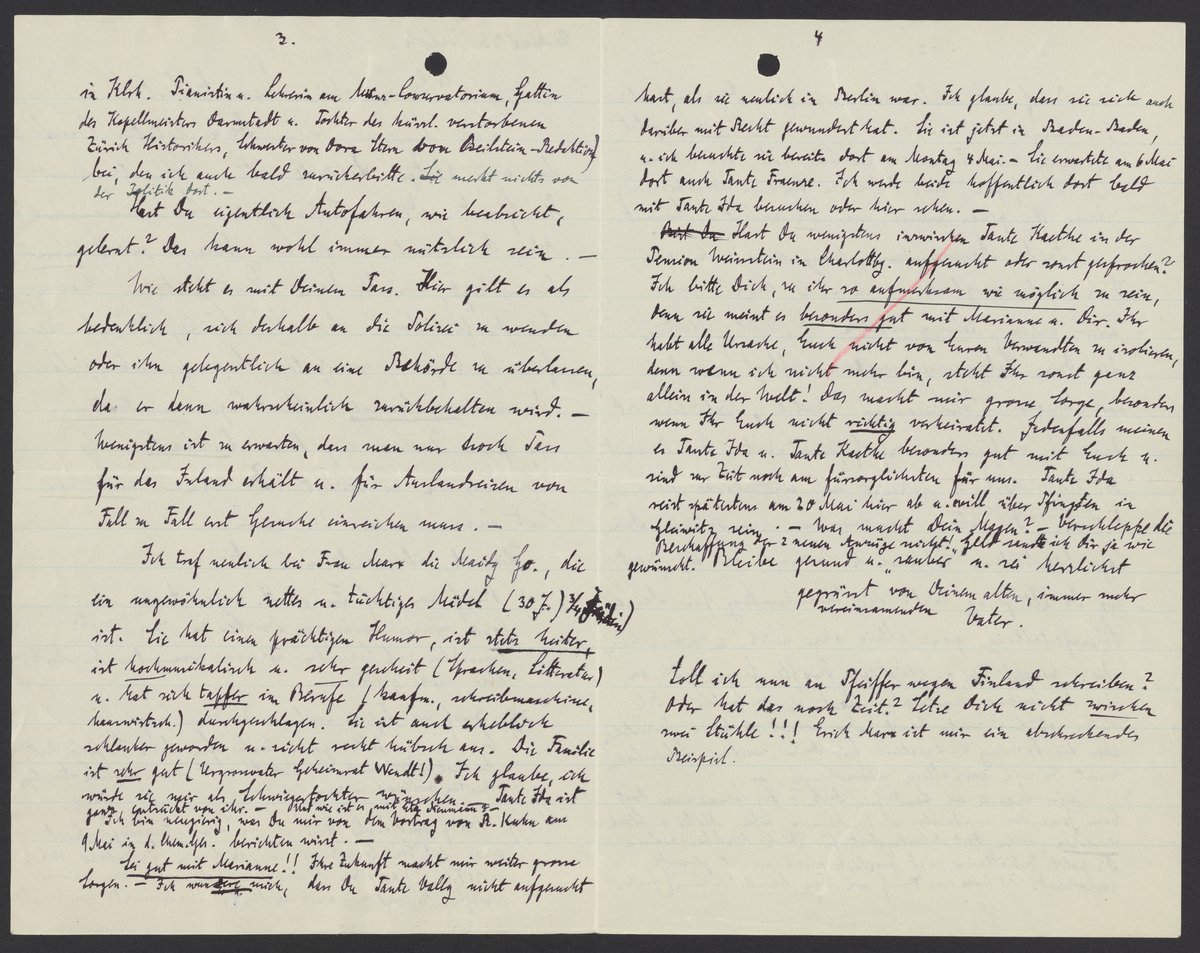 3.
in Klrh. Pianistin u. Lehrerin am Conservatorium, Gattin
des Kapellmeisters Darmstadt u. Tochter des kürzl. verstorbenen
Zürich Historikers, Schwester von Dora Stern von Beilstein-Redaktion)
bei, den ich auch bald zurückerbitte. Sie merkt nichts von
der Politik dort. –
Hast Du eigentlich Autofahren, wie beabsicht.,
gelernt? Das kann wohl immer nützlich sein. –
Wie steht es mit Deinem Pass. Hier gilt es als
bedenklich, sich deshalb an die Polizei zu wenden
oder ihn gelegentlich an eine Behörde zu überlassen,
da er dann wahrscheinlich zurückbehalten wird. –
Wenigstens ist zu erwarten, dass man nur noch Pass
für das Inland erhält u. für Auslandreisen von
Fall zu Fall erst Gesuche einreichen muss. –
Ich traf neulich bei Frau Marx die Maidy Go., die
ein ungewöhnlich nettes u. tüchtiges Mädel (30 J.) 3/4
ist. Sie hat einen prächtigen Humor, ist stets heiter,
ist hochmusikalisch u. sehr gescheit (Sprachen, Litteratur)
u. hat sich tapfer im Berufe (kaufm., schreibmaschine,
hauswirtsch.) durchgeschlagen. Sie ist auch erheblich
schlanker geworden u. sieht recht hübsch aus. Die Familie
ist sehr gut (Urgrossvater Geheimrat Wendt!). Ich glaube, ich
würde sie mir als Schwiegertochter wünschen. – Tante Ida ist
ganz entzückt von ihr. – Und wie ist es mit
Ich bin neugierig, was Du mir von dem Vortrag von R. Kuhn am
9 Mai in d. Chem. Ges. berichten wirst. –
Sei gut mit Marianne!! Ihre Zukunft macht mir weiter grosse
Sorgen. – Ich wundere mich, dass Du Tante Vally nicht aufgesucht
4
hast, als sie neulich in Berlin war. Ich glaube, dass sie sich auch
darüber mit Recht gewundert hat. Sie ist jetzt in Baden-Baden,
u. ich besuchte sie bereits dort am Montag 4 Mai. – Sie erwartete am 6 Mai
dort auch Tante Fraenze. Ich werde beide hoffentlich dort bald
mit Tante Ida besuchen oder hier sehen. –
Hast Du Hast Du wenigstens inzwischen Tante Kaethe in der
Pension Weinstein in Charlottbg. aufgesucht oder sonst gesprochen?
Ich bitte Dich, zu ihr so aufmerksam wie möglich zu sein,
denn sie meint es besonders gut mit Marianne u. Dir. Ihr
habt alle Ursache, Euch nicht von Euren Verwandten zu isolieren,
denn wenn ich nicht mehr bin, steht Ihr sonst ganz
allein in der Welt! Das macht mir grosse Sorge, besonders
wenn Ihr Euch nicht richtig verheiratet. Jedenfalls meinen
es Tante Ida u. Tante Kaethe besonders gut mit Euch u.
sind zur Zeit noch am fürsorglichsten für uns. Tante Ida
reist spätestens am 20 Mai hier ab u. will über Pfingsten in
Gleiwitz sein. – Was macht Dein Magen? – Verschleppe die
Beschaffung der 2 neuen Anzüge nicht! Geld sandte ich Dir ja wie
gewünscht. Bleibe gesund u. „sauber“ u. sei herzlichst
gegrüsst von Deinem alten, immer mehr
vereinsamenden Vater.
Soll ich nun an Pfeiffer wegen Finland schreiben?
Oder hat das noch Zeit? Setze Dich nicht zwischen
zwei Stühle!!! Erich Marx ist mir ein abschreckendes
Beispiel.